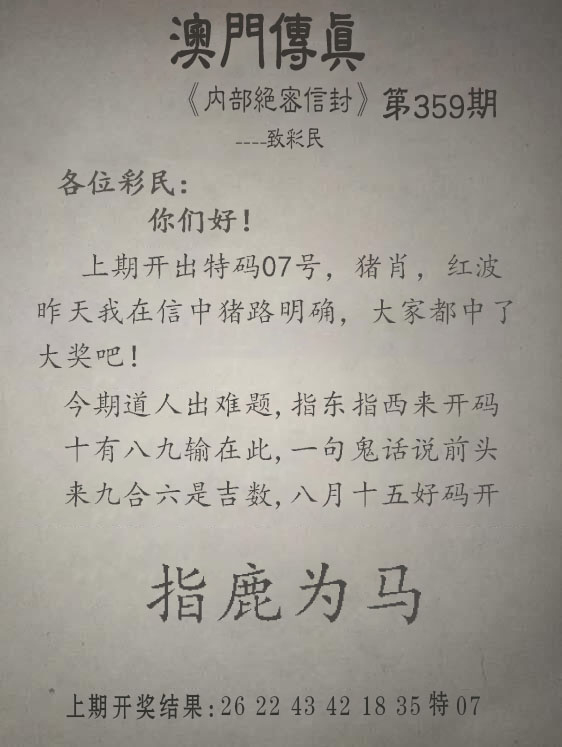 澳門傳眞
《内部絕密信封》第359期
----致彩民
各位彩民：
你们好！
上期开出特码07号，猪肖，红波
昨天我在信中猪路明确，大家都中了
大奖吧！
今期道人出难题,指东指西来开码
十有八九输在此,一句鬼话说前头
来九合六是吉数,八月十五好码开
指鹿为马
上期开奖结果:26 22 43 42 18 35 特 07